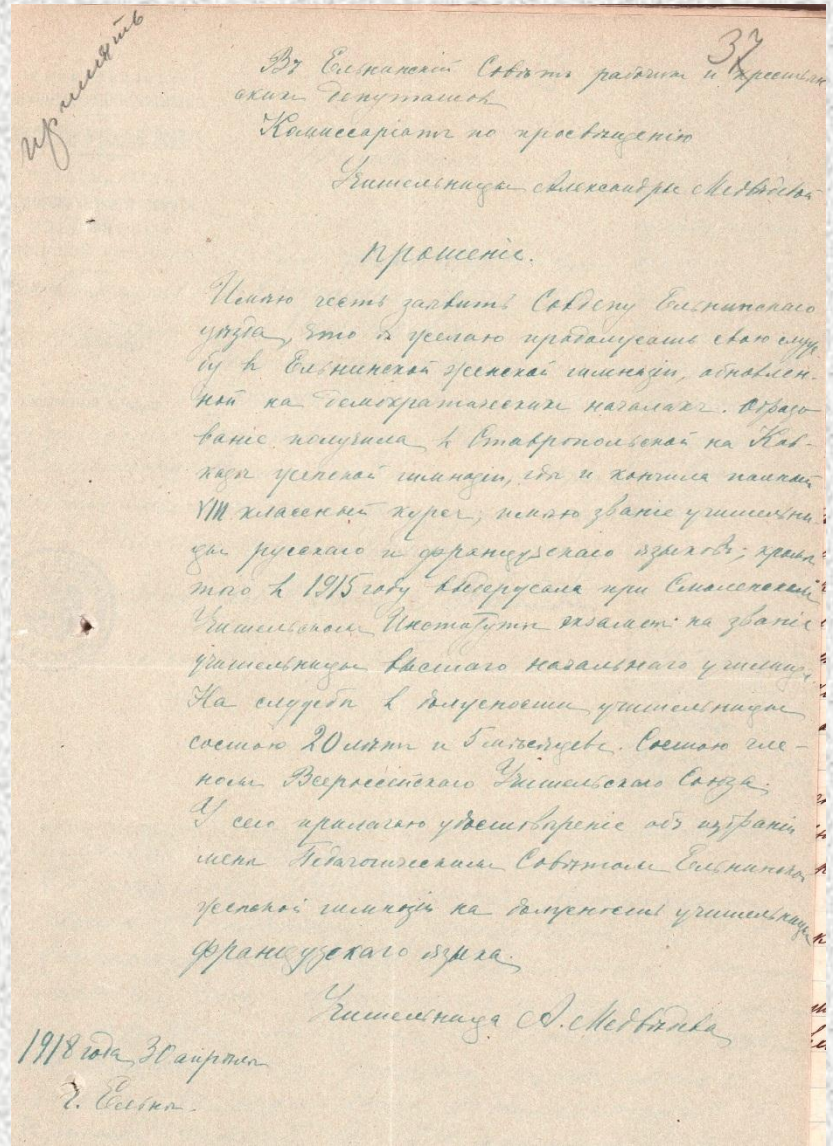 принять
37
Въ Ельнинскій Совѣтъ рабочих и крестьян
ских депутатов
Комиссаріатъ по просвѣщенію
Учительницы Александры Медвѣдевой
Прошеніе.
Имѣю честь заявить Совдепу Ельнинскаго
уѣзда, что я желаю продолжать свою служ
бу в Ельнинской женской гимназіи, обновлен-
ной на демократических началахъ. Образо
ваніе получила в Ставропольской на Кав-
казѣ женской гимназіи, гдѣ и кончила полный
VIII классный курсъ; имѣю званіе учительни
цы русскаго и французскаго языковъ; кромѣ
того в 1915 году выдержала при Смоленском
Учительском Институтѣ экзамен на званіе
учительницы высшаго начальнаго училища.
На службѣ в должности учительницы
состою 20 лѣтъ и 5 мѣсяцевъ. Состою чле-
ном Всероссійскаго Учительскаго Союза.
У сего прилагаю удостовѣреніе объ избраніи
меня Педагогическим Совѣтом Ельнинской
женской гимназіи на должность учительницы
французскаго языка.
Учительница А. Медвѣдева
1918 года, 30 апрѣля
г. Ельня.